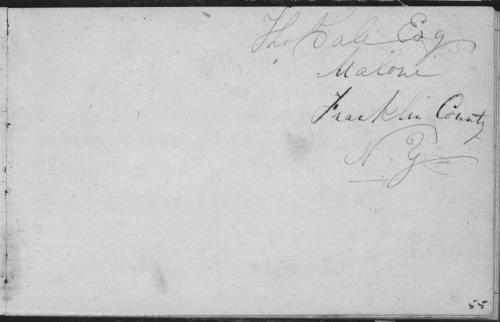 Tho Cale Esq
Malone
Franklin County
N. Y.
55